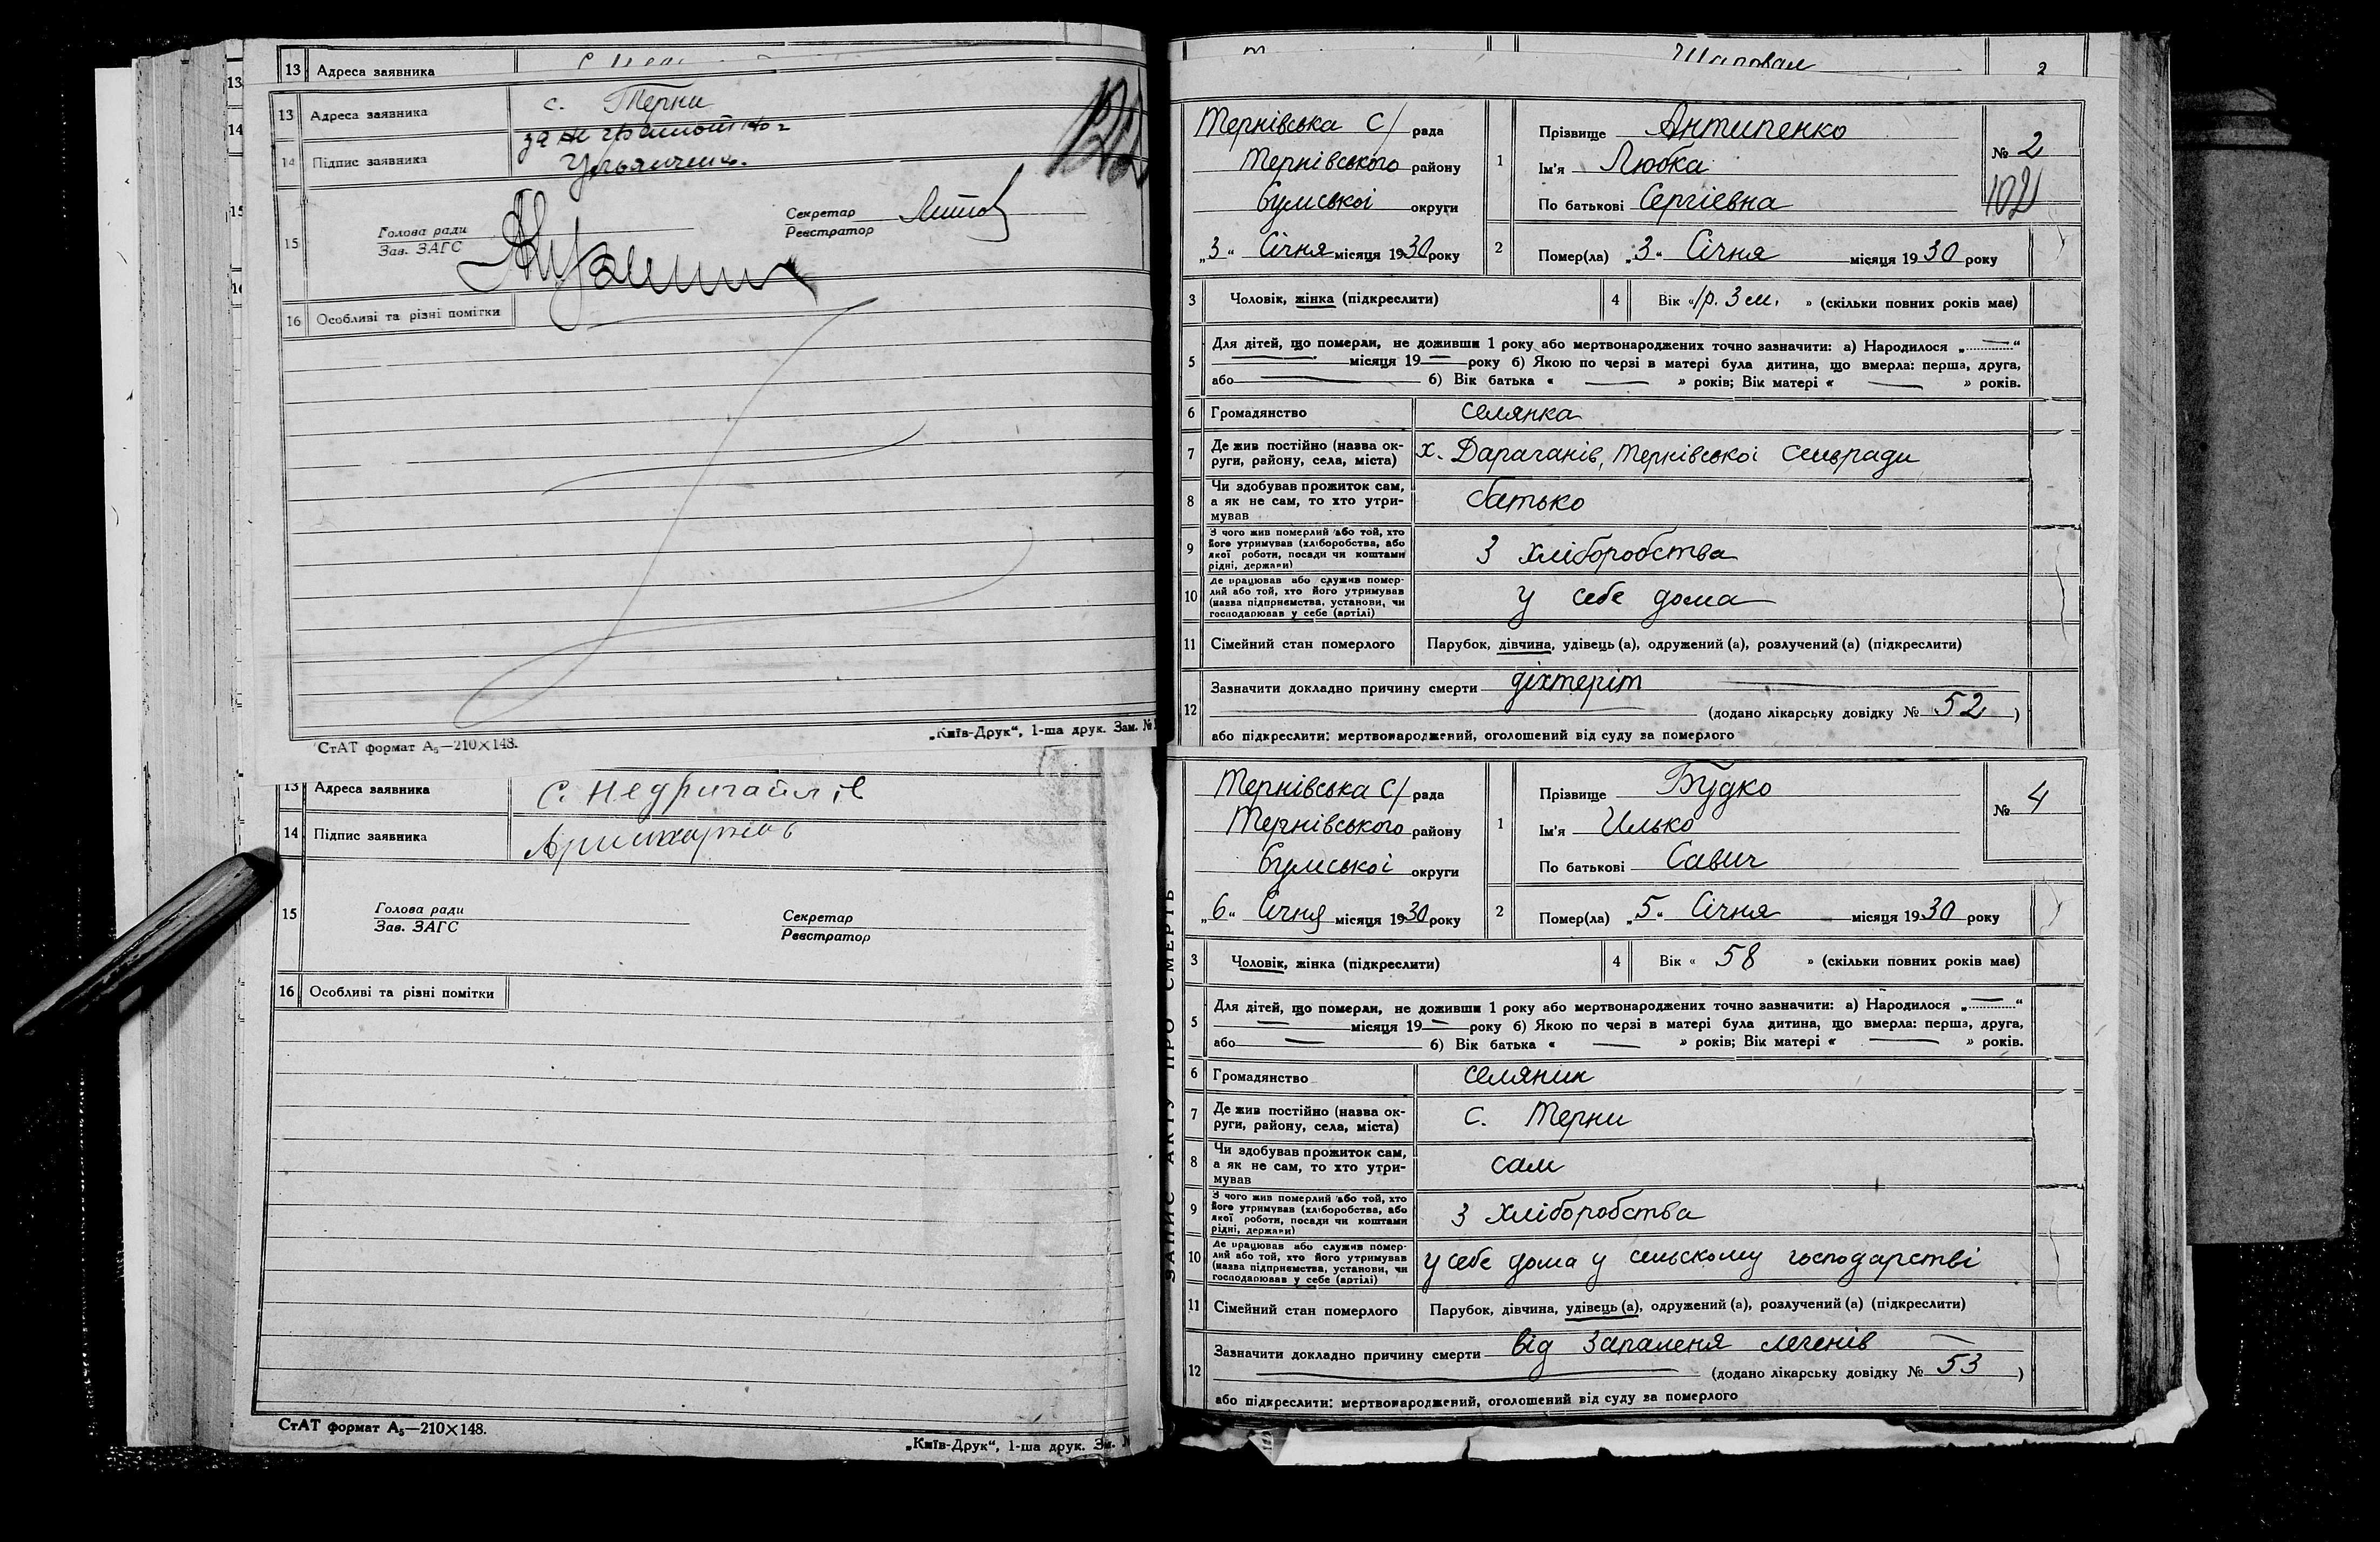 13 Адреса заявника
13 Адреса заявника с. Терни
за
14 Підпис заявника
15 Голова ради
Зав. ЗАГС
Секретар
Реєстратор
16 Особливі та різні помітки
СтАТ формат А₅—210×148.
„Київ-Друк“, 1-ша друк. Зам. №
13 Адреса заявника с. Недригайлів
14 Підпис заявника
15 Голова ради
Зав. ЗАГС
Секретар
Реєстратор
16 Особливі та різні помітки
СтАТ формат А₅—210×148.
„Київ-Друк“, 1-ша друк. Зам. №
Шаповал
2
Тернівська С/ рада
Тернівського району
Сумської округи
„3“ Січня місяця 1930 року
1 Прізвище Антипенко
Ім'я Любка
По батькові Сергіевна
№ 2
102
2 Помер(ла) „3“ Січня місяця 1930 року
3 Чоловік, жінка (підкреслити)
4 Вік «1р. 3 м.» (скільки повних років має)
5 Для дітей, що померли, не доживши 1 року або мертвонароджених точно зазначити: а) Народилося „—“
— місяця 19— року б) Якою по черзі в матері була дитина, що вмерла: перша, друга,
або — б) Вік батька « — » років; Вік матері « — » років.
6 Громадянство селянка
7 Де жив постійно (назва округи, району, села, міста) х. Дараганів, Тернівської сельради
8 Чи здобував прожиток сам,
а як не сам, то хто утри-
мував батько
9 З чого жив померлий або той, хто
його утримував (хліборобства, або
якої роботи, посади чи коштами
рідні, держави) З хліборобства
10 Де працював або служив помер-
лий або той, хто його утримував
(назва підприємства, установи, чи
господарював у себе (артілі) У себе дома
11 Сімейний стан померлого Парубок, дівчина, удівець (а), одружений (а), розлучений (а) (підкреслити)
12 Зазначити докладно причину смерти діхтеріт
(додано лікарську довідку № 52)
або підкреслити: мертвонароджений, оголошений від суду за померлого
ЗАПИС АКТУ ПРО СМЕРТЬ
Тернівська С/ рада
Тернівського району
Сумської округи
„6“ Січня місяця 1930 року
1 Прізвище Будко
Ім'я Илько
По батькові Савич
№ 4
2 Помер(ла) „5“ Січня місяця 1930 року
3 Чоловік, жінка (підкреслити)
4 Вік « 58 » (скільки повних років має)
5 Для дітей, що померли, не доживши 1 року або мертвонароджених точно зазначити: а) Народилося „—“
— місяця 19— року б) Якою по черзі в матері була дитина, що вмерла: перша, друга,
або — б) Вік батька « — » років; Вік матері « — » років.
6 Громадянство селяник
7 Де жив постійно (назва ок-
руги, району, села, міста) с. Терни
8 Чи здобував прожиток сам,
а як не сам, то хто утри-
мував сам
9 З чого жив померлий або той, хто
його утримував (хліборобства, або
якої роботи, посади чи коштами
рідні, держави) З хліборобства
10 Де працював або служив помер-
лий або той, хто його утримував
(назва підприємства, установи, чи
господарював у себе (артілі) у себе дома у сельскому господарстві
11 Сімейний стан померлого Парубок, дівчина, удівець (а), одружений (а), розлучений (а) (підкреслити)
12 Зазначити докладно причину смерти від Запаленя легенів
(додано лікарську довідку № 53)
або підкреслити: мертвонароджений, оголошений від суду за померлого